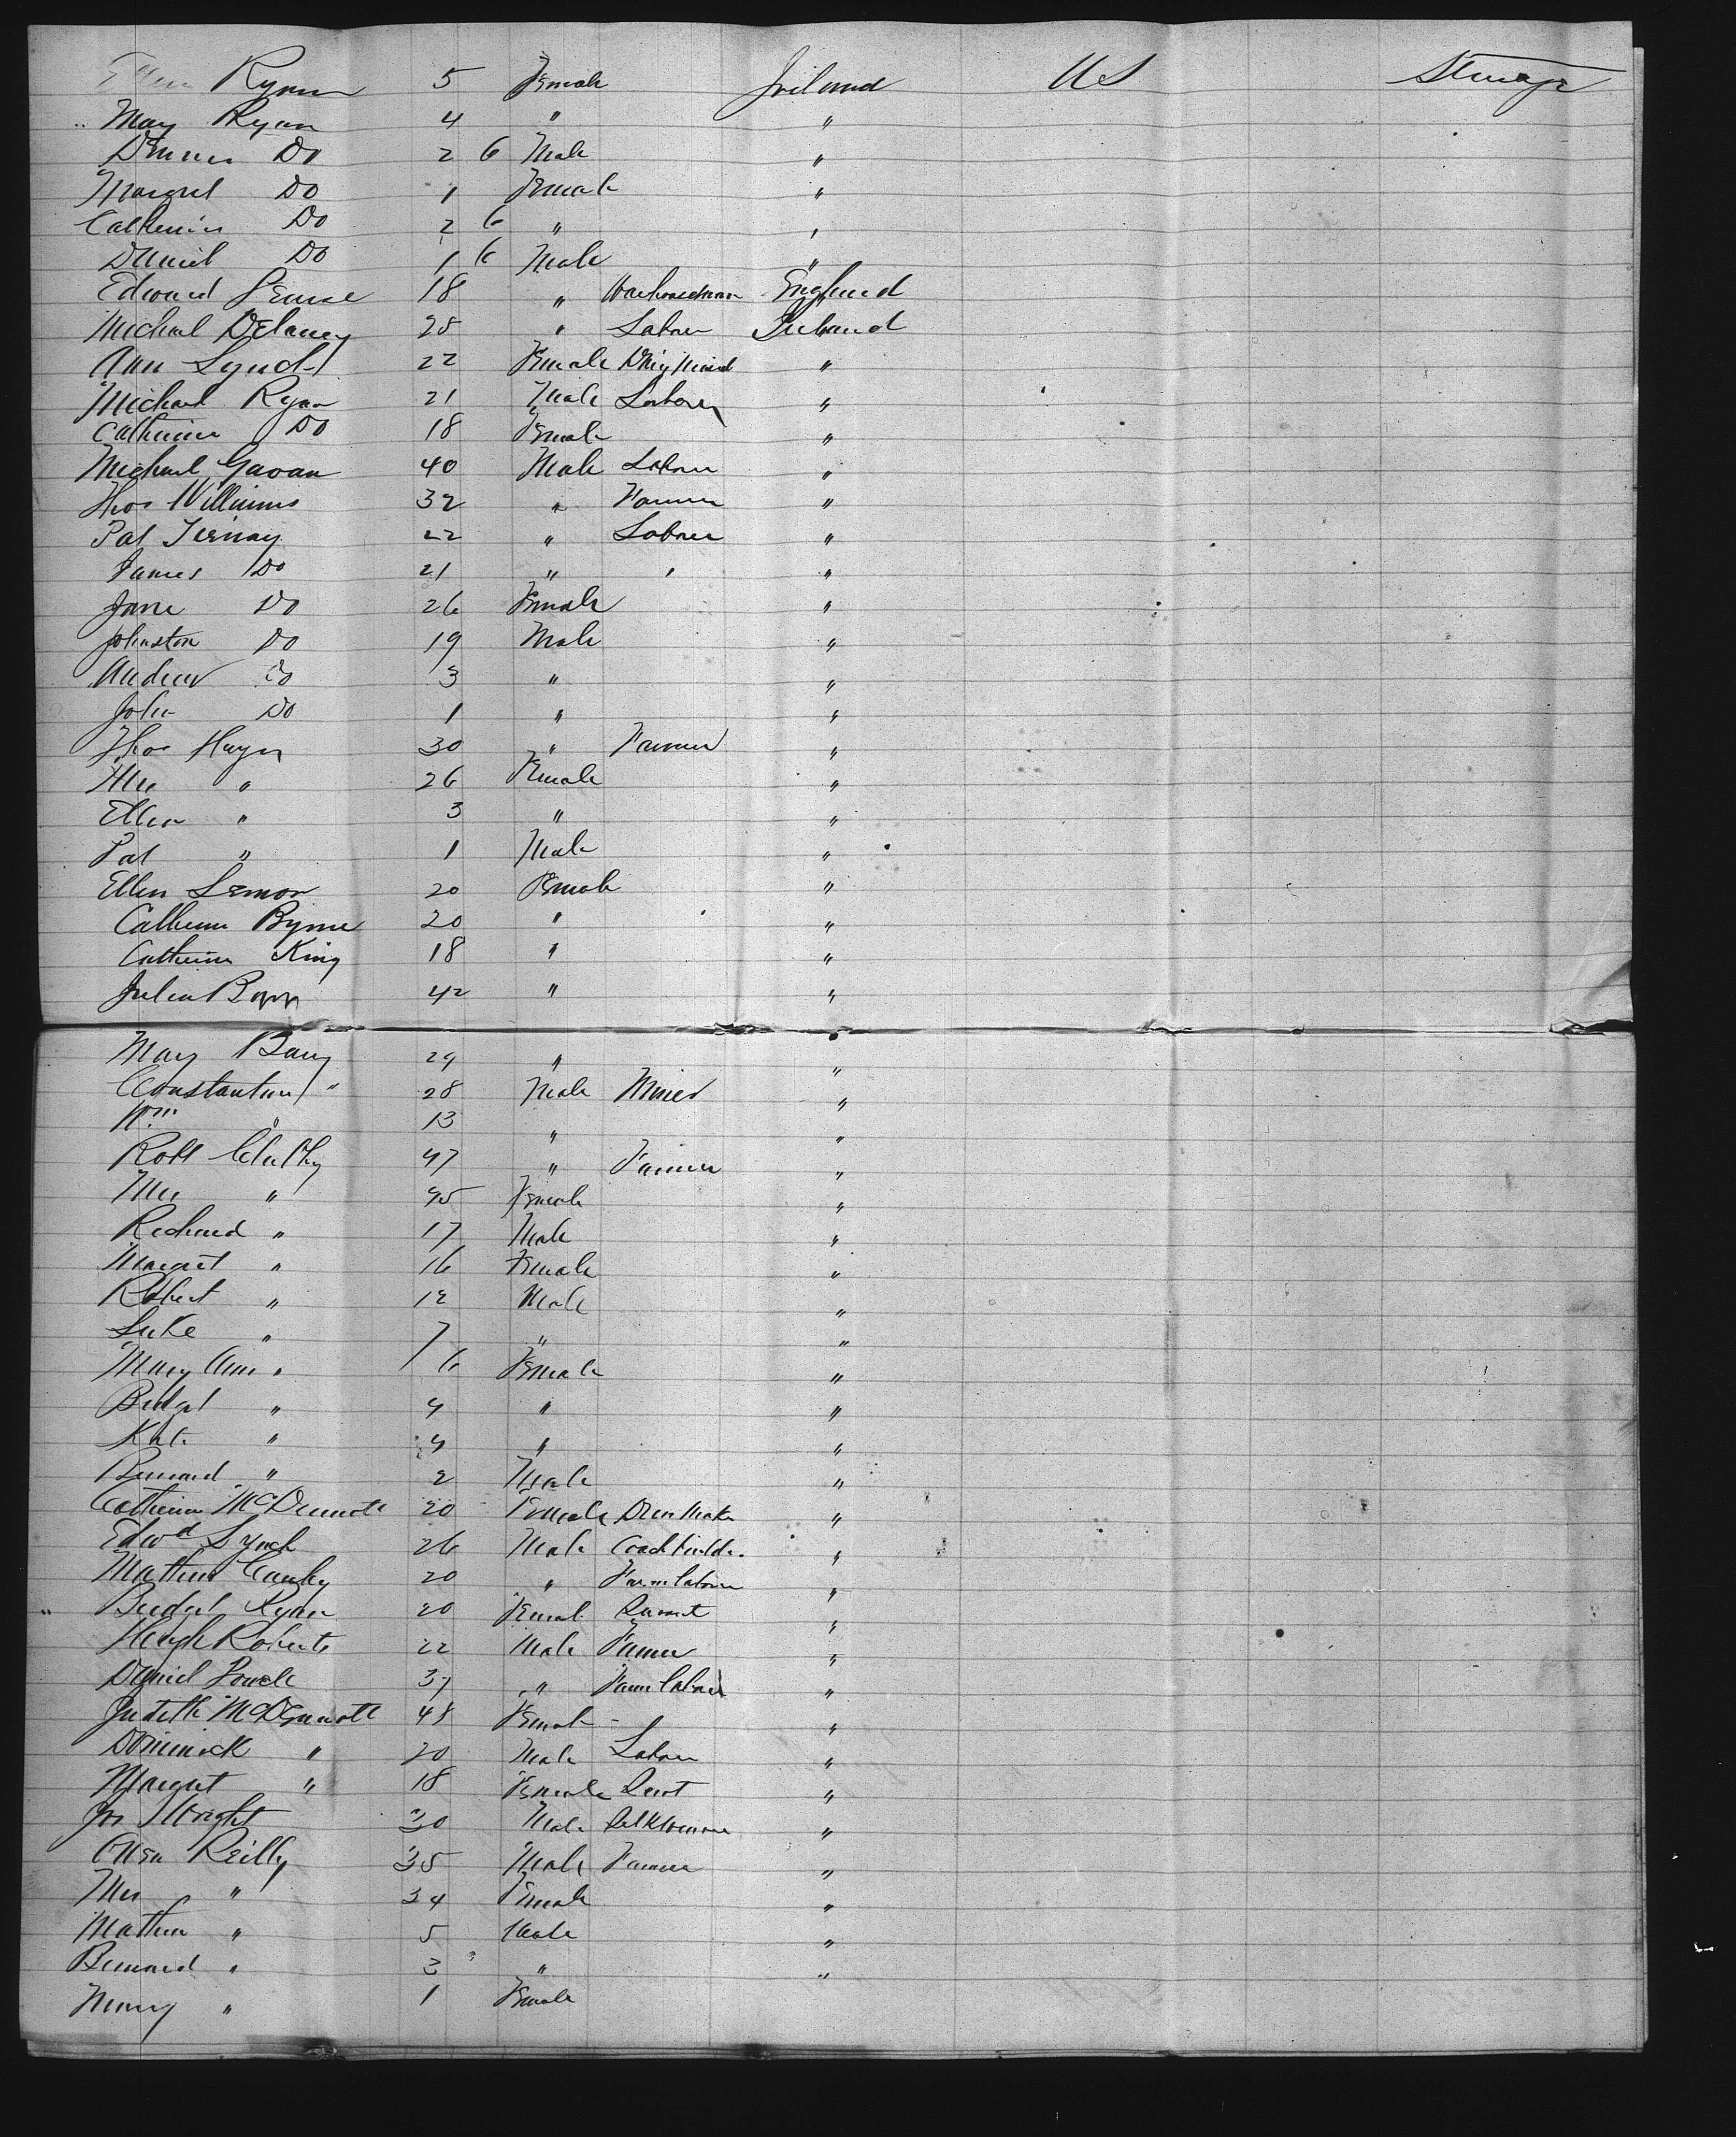 Ellen Ryan 5 Female Ireland US Steerage
May Ryan 4 " "
Dennis Do 2 6 Male "
Margret Do 1 Female "
Catherine Do 2 6 " "
Daniel Do 1 6 Male "
Edward 18 " Warehouseman England
Michael Delaney 28 " Labour Ireland
Ann Lynch 22 Female "
Michael Ryan 21 Male Laborer "
Catherine Do 18 Female "
Michael Gavan 40 Male Labour "
Thos Williams 32 " Farmer "
Pat Tiernay 22 " Labour "
James Do 21 " " "
Jane Do 26 Female "
Johnston Do 19 Male "
Andrew Do 3 " "
John Do 1 " "
Thos Hayes 30 " Farmer "
Mrs " 26 Female "
Ellen " 3 " "
Pat " 1 Male "
Ellen Lemon 20 Female "
Catherine Byrne 20 " "
Catherine King 18 " "
Julia 42 " "
May Barry 29 " "
Constantine " 28 Male Miner "
Wm " 13 " "
Robt 47 " Farmer "
Mrs " 45 Female "
Richard " 17 Male "
Margret " 16 Female "
Robert " 12 Male "
Luke " 7 " "
Mary Ann " 6 Female "
Bridget " 4 " "
Kate " 4 " "
Bernard " 2 Male "
Catherine McDermott 20 Female Dress Maker "
Edwd Lynch 26 Male Coachbuilder "
Mathew 20 " Farm labour "
Bridget Ryan 20 Female Servant "
Hugh Roberts 22 Male Farmer "
Daniel 37 " Farm labour "
Judith McDermott 48 Female "
Dominick " 20 Male Labour "
Margret " 18 Female Servt "
Jos Wright 30 Male "
Owen Reilly 35 Male Farmer "
Mrs " 34 Female "
Mathew " 5 Male "
Bernard " 3 " "
" 1 Female